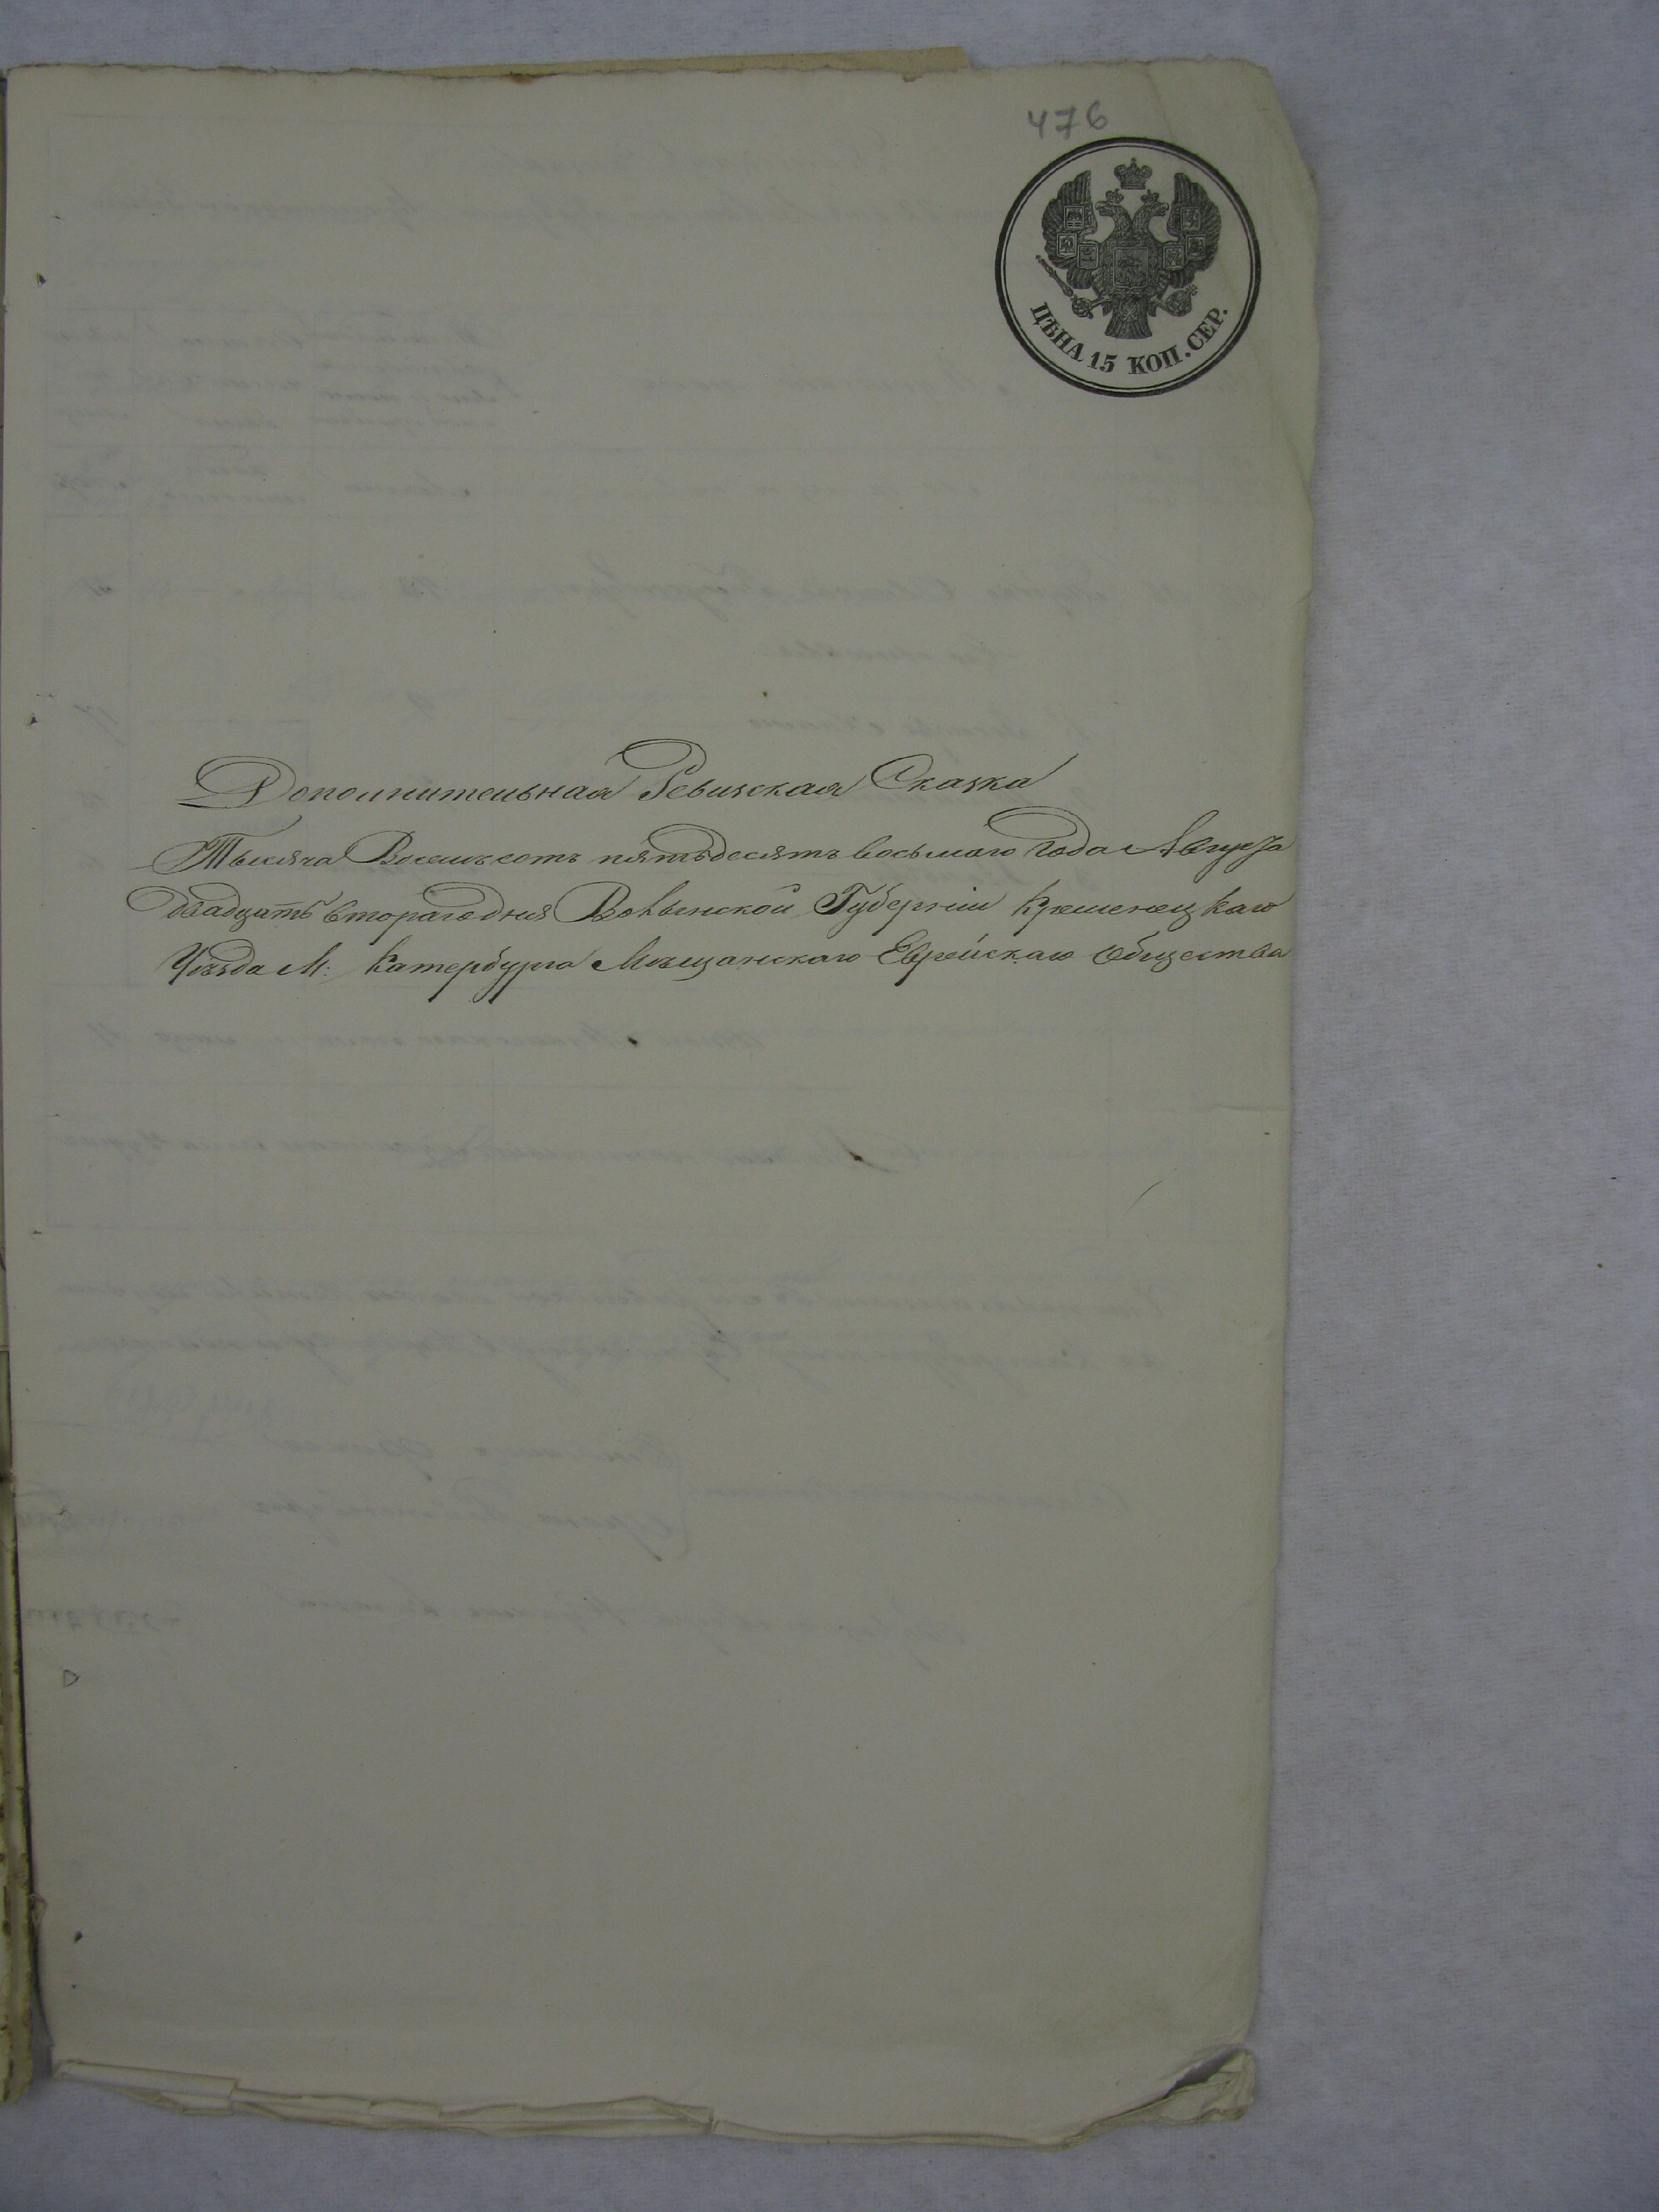 476
ЦѢНА 15 КОП. СЕР.
Дополнительная Ревизская Сказка
Тысяча Восемьсотъ пятьдесятъ восьмаго Года Августа
двадцать втораго дня Волынской Губерніи Кременецкаго
Уѣзда М: Катербурга Мѣщанскаго Еврейскаго Общества